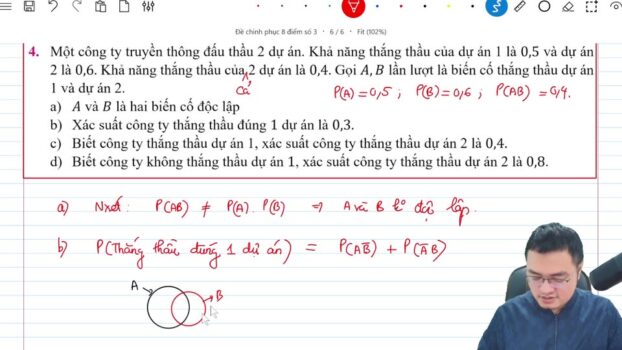 Đề chinh phục 8 điểm số 3 • 6 / 6 • Fit (102%)
4. Một công ty truyền thông đấu thầu 2 dự án. Khả năng thắng thầu của dự án 1 là 0,5 và dự án
2 là 0,6. Khả năng thắng thầu của 2 dự án là 0,4. Gọi A, B lần lượt là biến cố thắng thầu dự án
1 và dự án 2.
cả
P(A) = 0,5 ; P(B) = 0,6 ; P(AB) = 0,4.
a) A và B là hai biến cố độc lập
b) Xác suất công ty thắng thầu đúng 1 dự án là 0,3.
c) Biết công ty thắng thầu dự án 1, xác suất công ty thắng thầu dự án 2 là 0,4.
d) Biết công ty không thắng thầu dự án 1, xác suất công ty thắng thầu dự án 2 là 0,8.
a) Nxét: P(AB) ≠ P(A). P(B) ⇒ A và B k° độc lập.
b) P(Thắng thầu đúng 1 dự án) = P(AB̅) + P(A̅B)
A
B